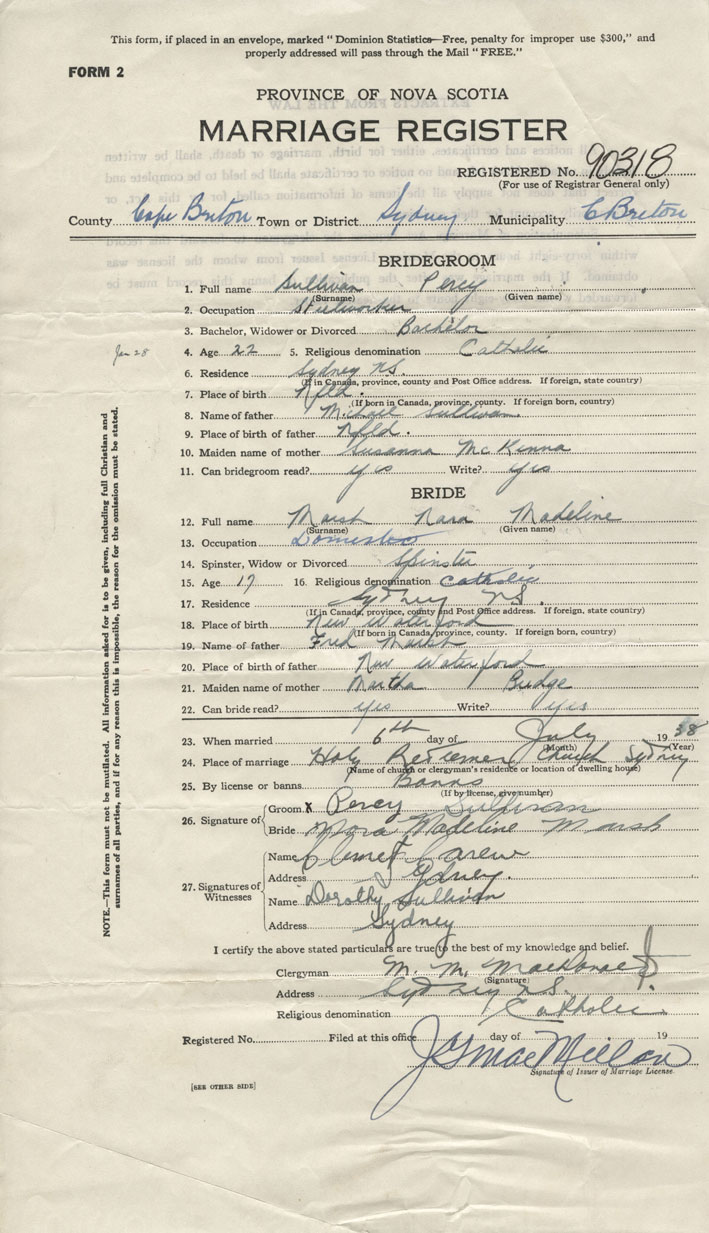 This form, if placed in an envelope, marked "Dominion Statistics—Free, penalty for improper use $300," and
properly addressed will pass through the Mail "FREE."
FORM 2
PROVINCE OF NOVA SCOTIA
MARRIAGE REGISTER
REGISTERED No. 90318
(For use of Registrar General only)
County Cape Breton Town or District Sydney Municipality C Breton
BRIDEGROOM
1. Full name Sullivan Percy
(Surname) (Given name)
2. Occupation Steelworker
3. Bachelor, Widower or Divorced Bachelor
Jan 28
4. Age 22 5. Religious denomination Catholic
6. Residence Sydney NS.
(If in Canada, province, county and Post Office address. If foreign, state country)
7. Place of birth Nfld.
(If born in Canada, province, county. If foreign born, country)
8. Name of father Michael Sullivan
9. Place of birth of father Nfld.
10. Maiden name of mother Susanna McKinna
11. Can bridegroom read? yes Write? yes
BRIDE
12. Full name Marsh Nora Madeline
(Surname) (Given name)
13. Occupation Domestic
14. Spinster, Widow or Divorced Spinster
15. Age 17 16. Religious denomination Catholic
17. Residence Sydney NS.
(If in Canada, province, county and Post Office address. If foreign, state country)
18. Place of birth New Waterford
(If born in Canada, province, county. If foreign born, country)
19. Name of father Fred Marsh
20. Place of birth of father New Waterford
21. Maiden name of mother Martha Budge
22. Can bride read? yes Write? yes
23. When married 6th day of July 1938
(Month) (Year)
24. Place of marriage Holy Redeemer Church Sydney
(Name of church or clergyman's residence or location of dwelling house)
25. By license or banns Banns
(If by license, give number)
26. Signature of
Groom x Percy Sullivan
Bride Nora Madeline Marsh
27. Signatures of Witnesses
Name Carew
Address Sydney.
Name Dorothy Sullivan
Address Sydney
I certify the above stated particulars are true to the best of my knowledge and belief.
Clergyman M. M.
(Signature)
Address Sydney N.S.
Religious denomination Catholic
Registered No. Filed at this office day of 19
J G MacMillan
Signature of Issuer of Marriage License.
[SEE OTHER SIDE]
NOTE.—This form must not be mutilated. All information asked for is to be given, including full Christian and
surnames of all parties, and if for any reason this is impossible, the reason for the omission must be stated.